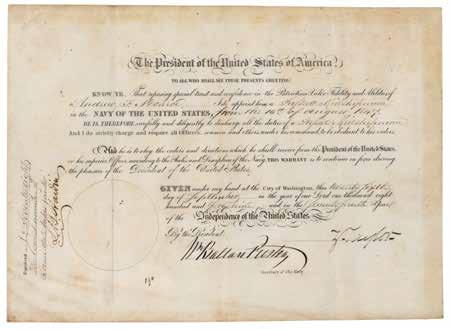 The President of the United States of America
TO ALL WHO SHALL SEE THESE PRESENTS GREETING:
KNOW YE, That reposing special trust and confidence in the Patriotism Valor Fidelity and Abilities of
Andrew F. Monroe I do appoint him a Passed Midshipman
in the NAVY OF THE UNITED STATES, from the 10th of August 1847.
HE IS, THEREFORE, carefully and diligently to discharge all the duties of a Passed Midshipman
And I do strictly charge and require all Officers, seamen and others under his command to be obedient to his orders.
And he is to obey the orders and directions which he shall receive from the President of the United States
or his superior Officer according to the Rules and Discipline of the Navy. THIS WARRANT is to continue in force during
the pleasure of the President of the United States.
GIVEN under my hand at the City of Washington, this
day of September in the year of our Lord one thousand eight
hundred and and in the Year
of the Independence of the United States.
By the President,
Wm Ballard Preston
Secretary of the Navy
Z. Taylor
Registered